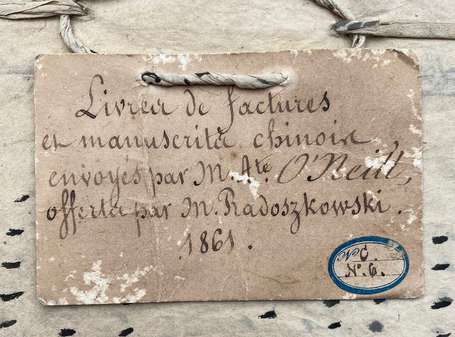 Livres de factures
et manuscrits chinois
envoyés par M. Ate O'Neill,
offerts par M. Radoszkowski.
1861.
N°. 6.